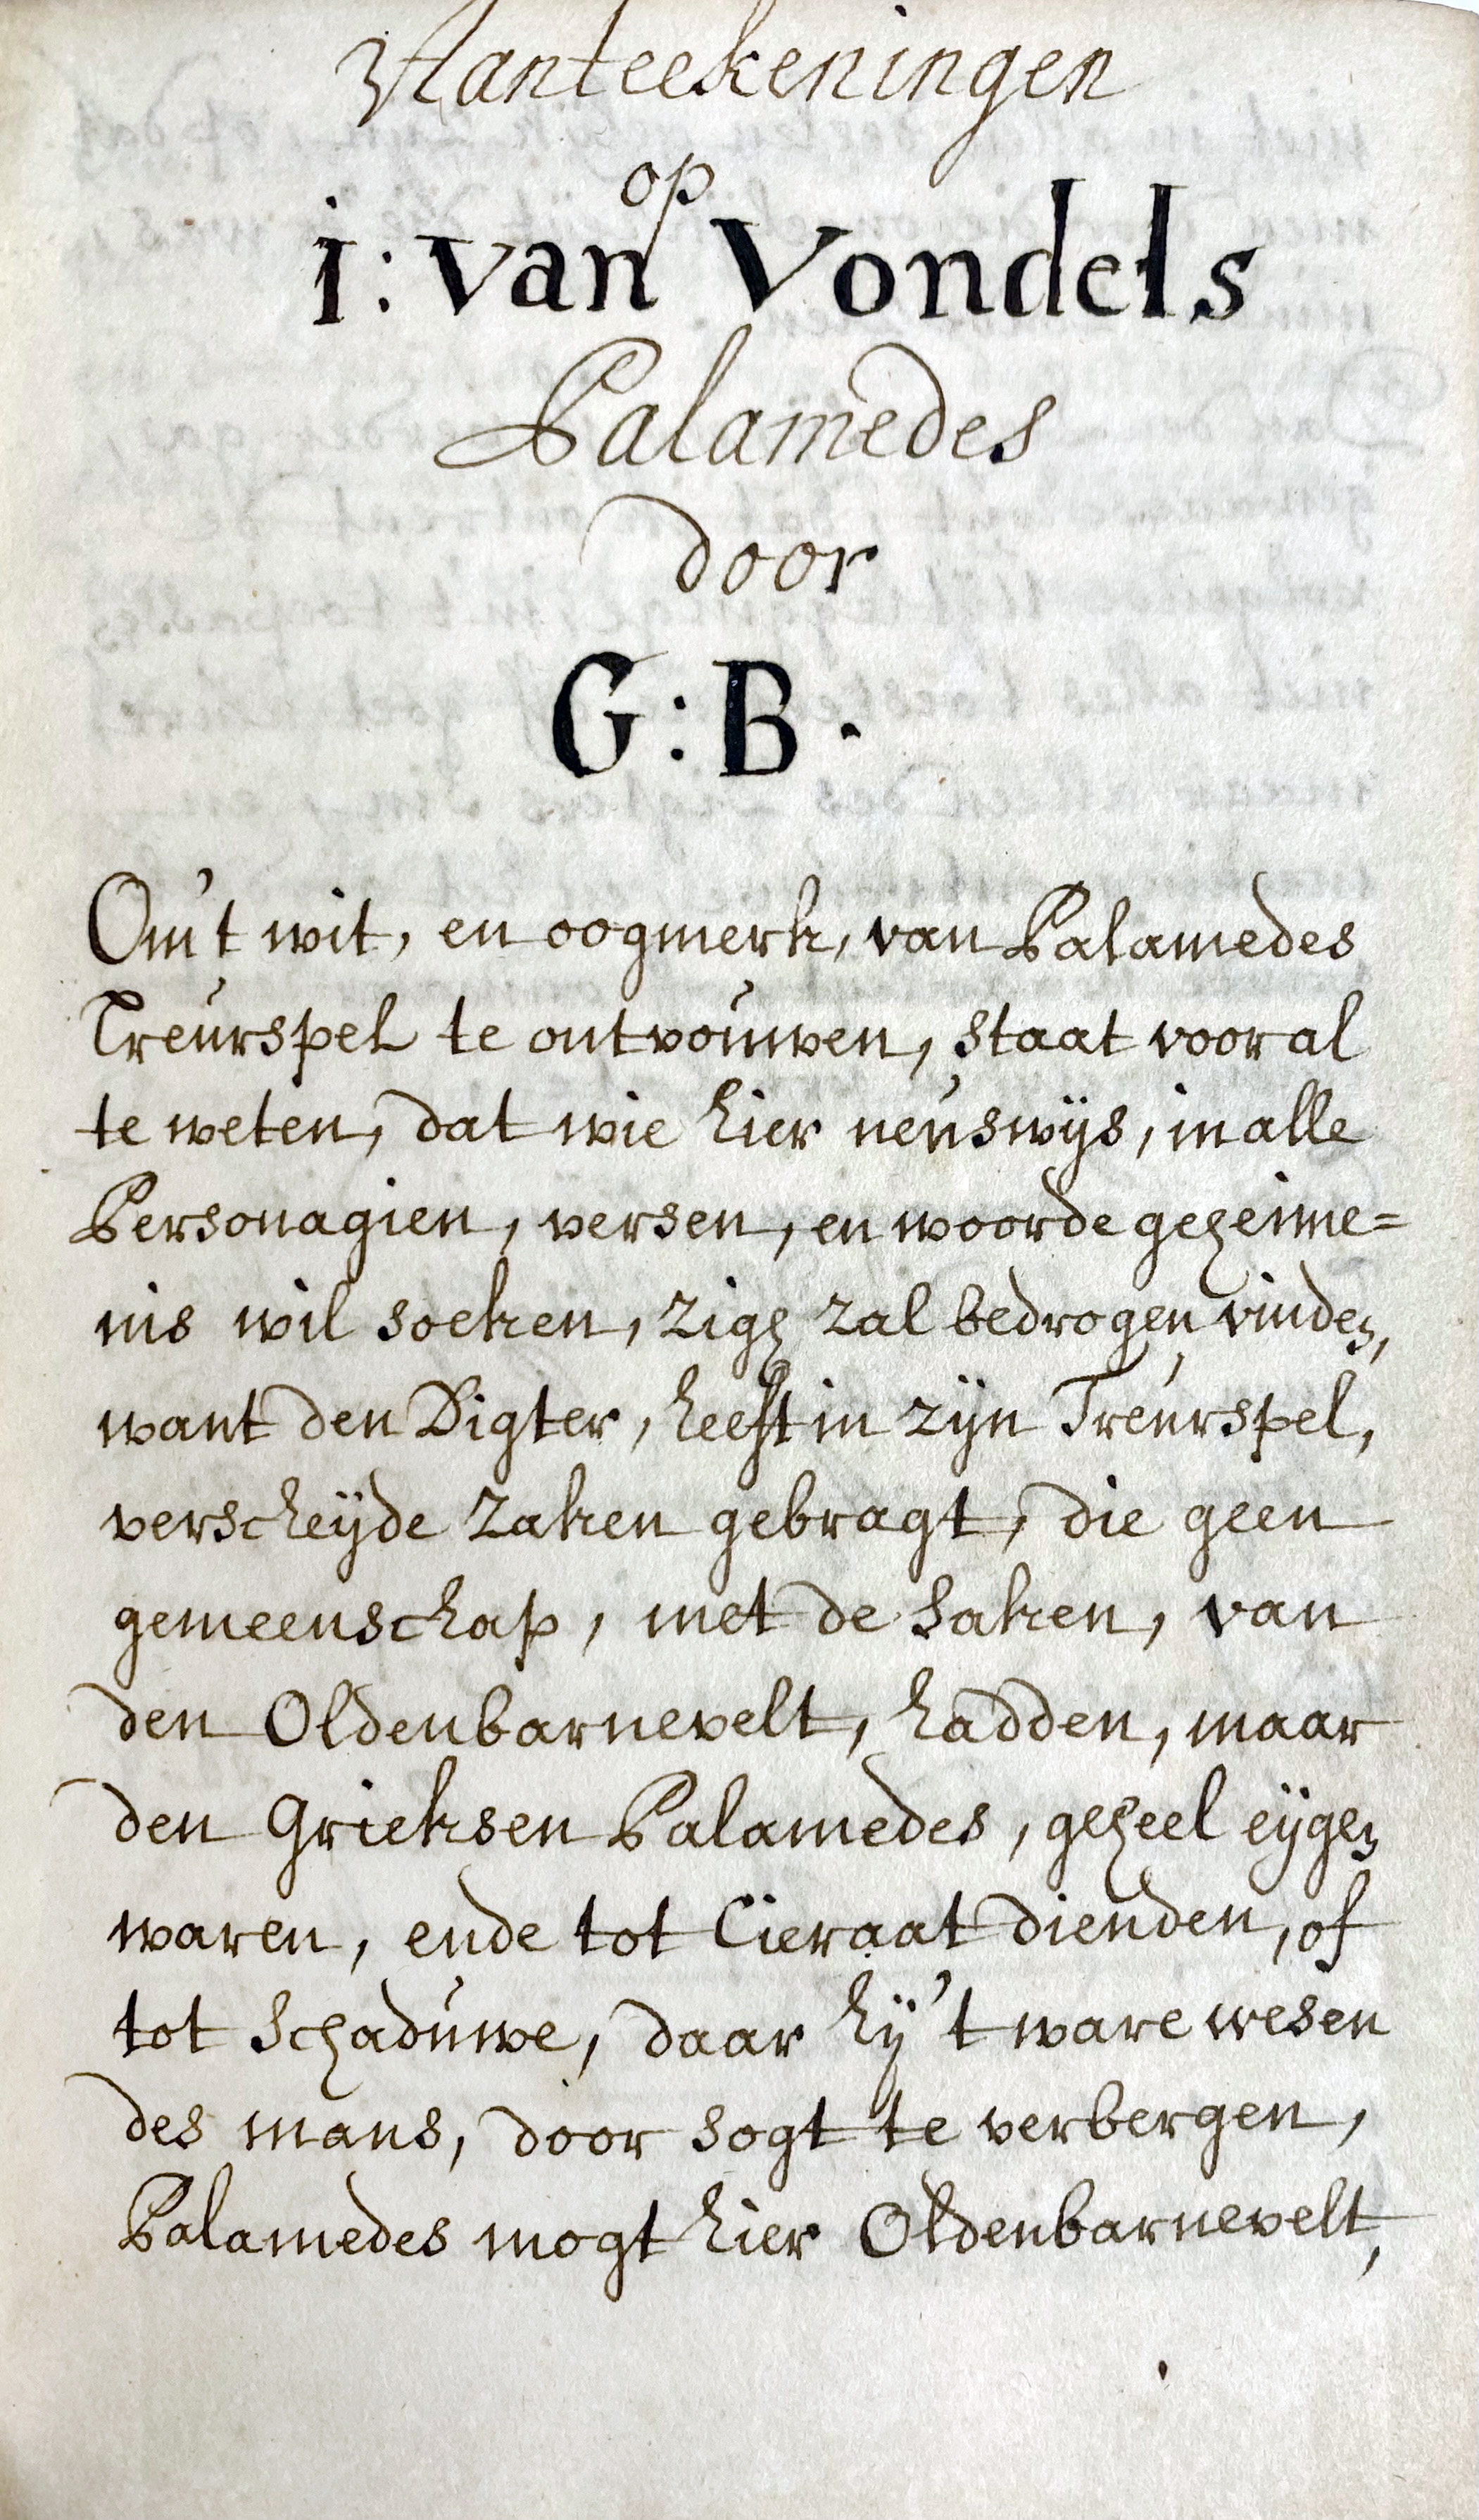 Aanteekeningen
op
i: van Vondels
Palamedes
door
G: B.
Om't wit, en oogmerk, van Palamedes
Treurspel te ontvouwen, staat voor al
te weten, dat wie hier neuswijs, in alle
Personagien, versen, en woorde geheime=
nis wil soeken, zigh zal bedrogen vinden,
want den Digter, heeft in zijn Treurspel,
verscheÿde zaken gebragt, die geen
gemeenschap, met de saken, van
den Oldenbarnevelt, hadden, maar
den Grieksen Palamedes, geheel eÿgen
waren, ende tot Cieraat dienden, of
tot schaduwe, daar hÿ 't ware wesen
des mans, door sogt te verbergen,
Palamedes mogt hier Oldenbarnevelt,